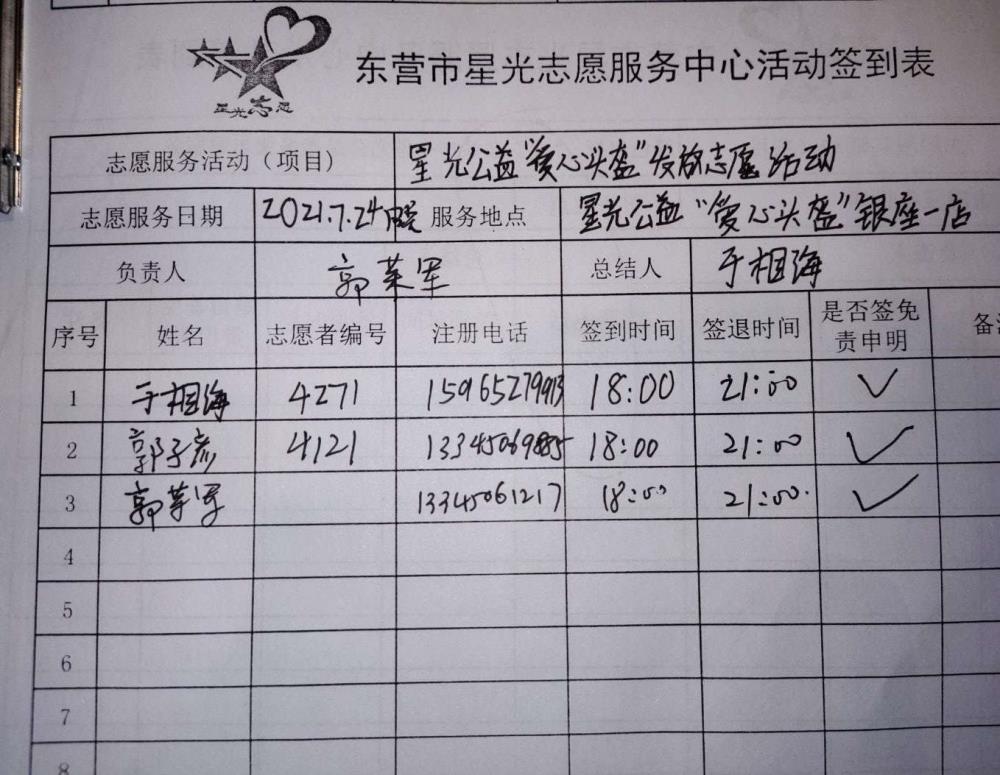 星光志愿
东营市星光志愿服务中心活动签到表
志愿服务活动（项目） 星光公益“爱心头盔”发放志愿活动
志愿服务日期 2021.7.24晚 服务地点 星光公益“爱心头盔”银座一店
负责人 郭莱军 总结人 于相海
序号 姓名 志愿者编号 注册电话 签到时间 签退时间 是否签免责申明
1 于相海 4271 15965279913 18:00 21:00 ✓
2 郭子彦 4121 13345069885 18:00 21:00 ✓
3 郭莱军 13345061217 18:00 21:00. ✓
4
5
6
7
8